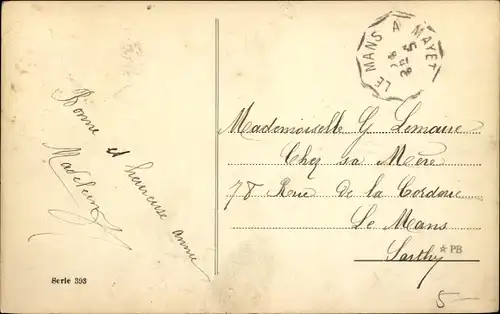 LE MANS A MAYET
Bonne et heureuse année
Madeleine
Mademoiselle G Lemaire
Chez sa Mère
78 Rue de la Corderie
Le Mans
Sarthe
*PB
Serie 393
5-